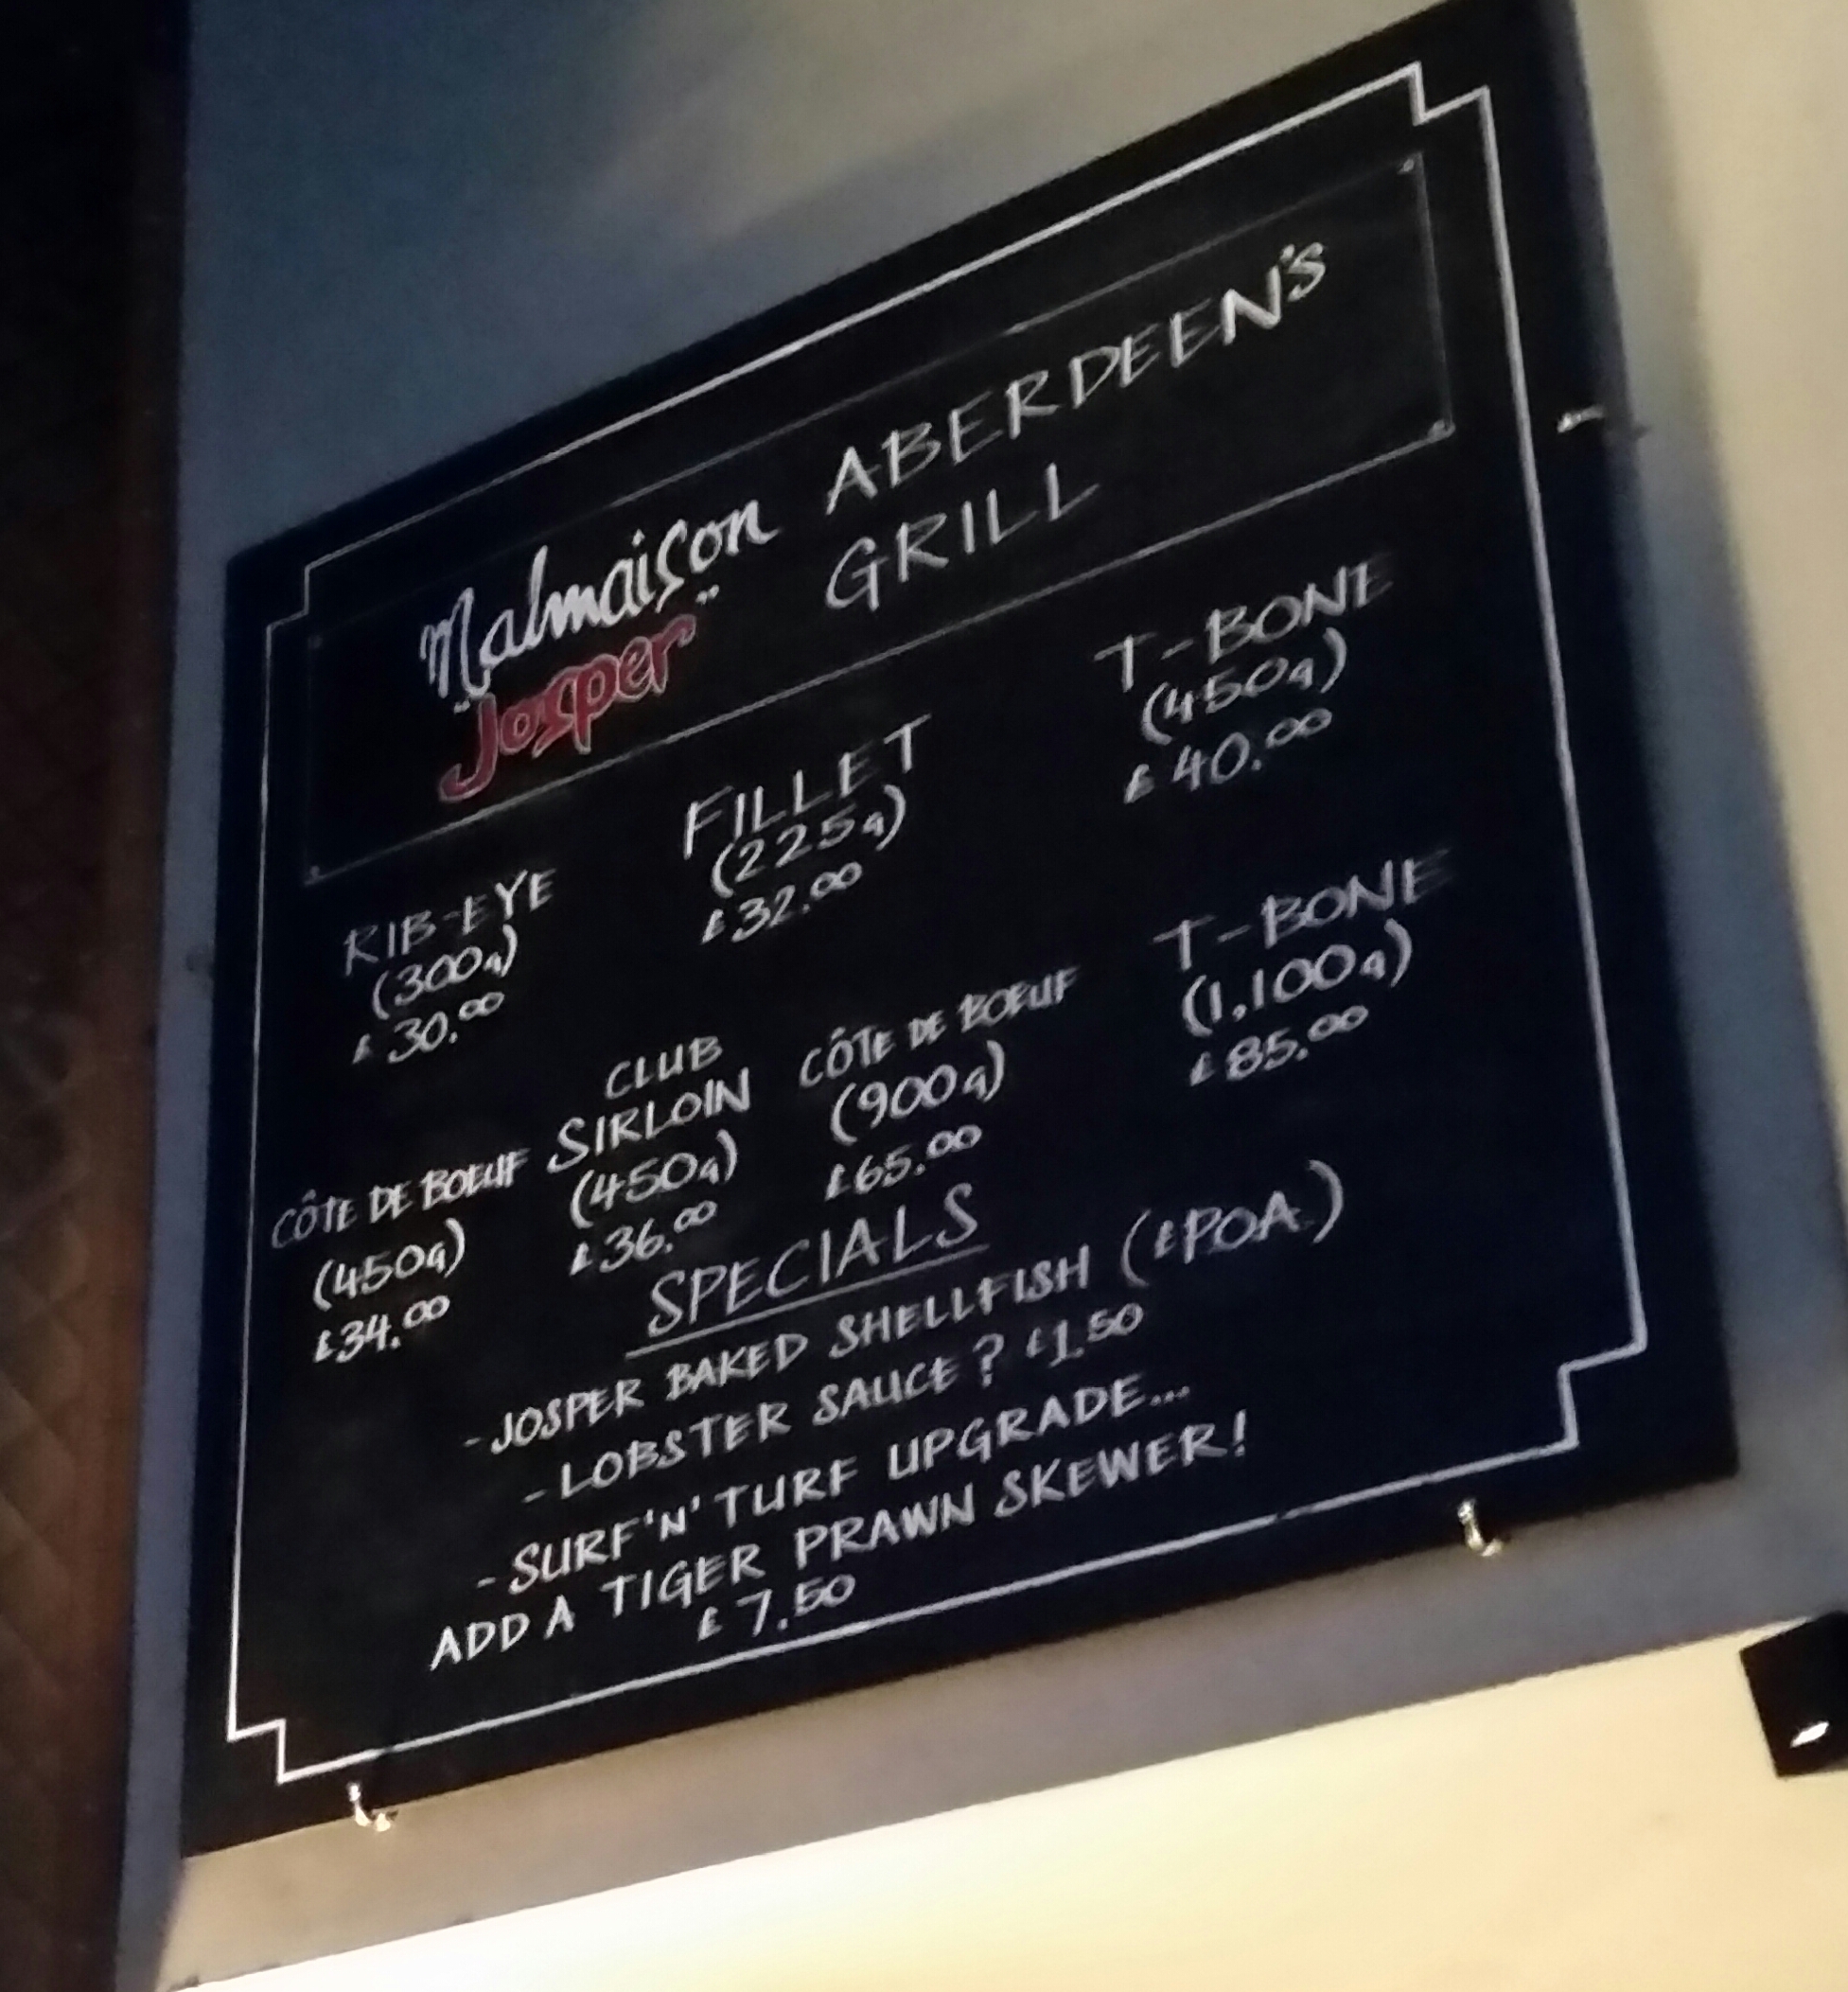 Malmaison ABERDEEN'S
"Josper" GRILL
RIB-EYE
(300g)
£30.00
FILLET
(225g)
£32.00
T-BONE
(450g)
£40.00
CÔTE DE BOEUF
(450g)
£34.00
CLUB
SIRLOIN
(450g)
£36.00
CÔTE DE BOEUF
(900g)
£65.00
T-BONE
(1,100g)
£85.00
SPECIALS
-JOSPER BAKED SHELLFISH (£POA.)
-LOBSTER SAUCE? £1.50
-SURF'N'TURF UPGRADE...
ADD A TIGER PRAWN SKEWER!
£7.50